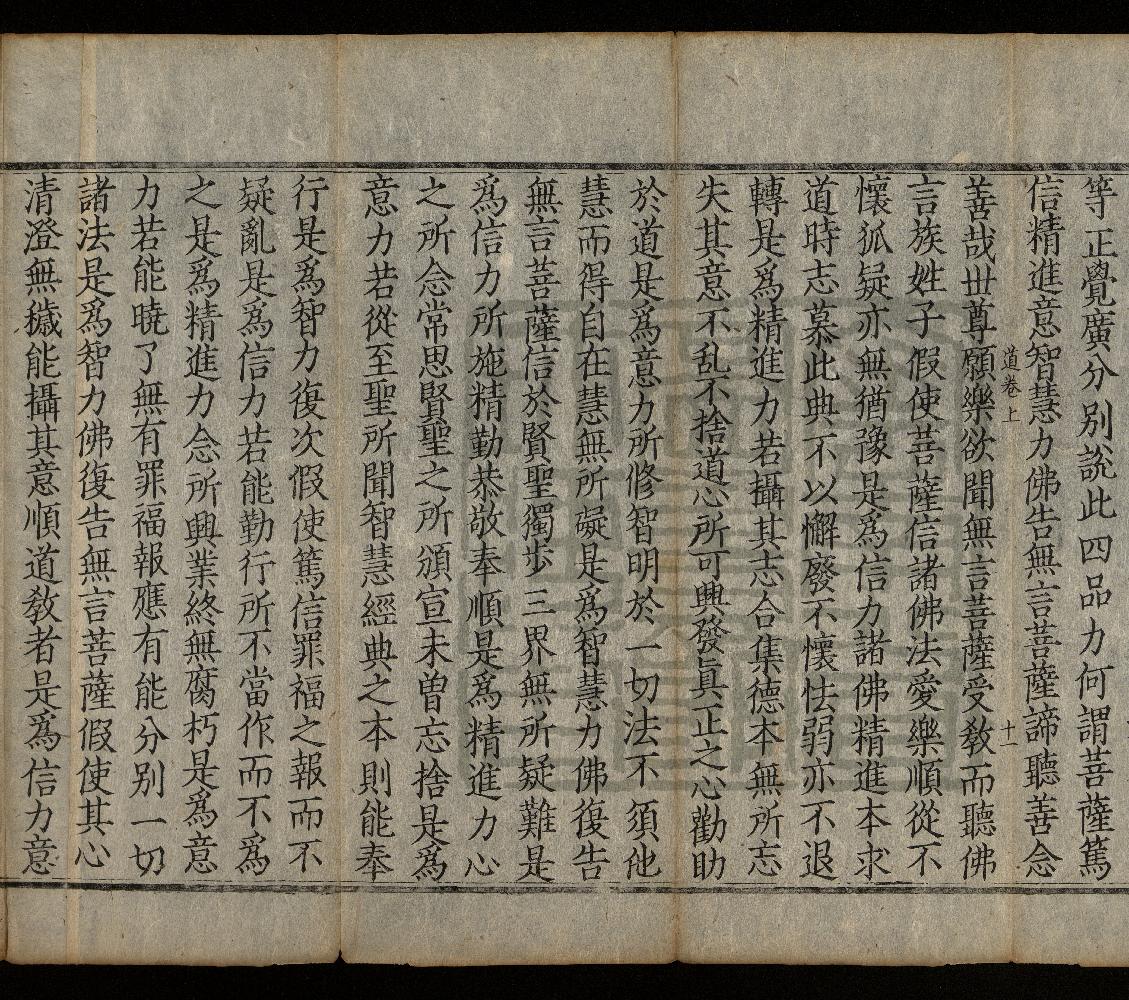 等正覺廣分別說此四品力何謂菩薩篤
信精進意智慧力佛告無言菩薩諦聽善念
道卷上 十一
善哉世尊願樂欲聞無言菩薩受敎而聽佛
言族姓子假使菩薩信諸佛法愛樂順從不
懷狐疑亦無猶豫是爲信力諸佛精進本求
道時志慕此典不以懈廢不懷怯弱亦不退
轉是爲精進力若攝其志合集德本無所忘
失其意不乱不捨道心所可興發眞正之心勸助
於道是爲意力所修智明於一切法不須他
慧而得自在慧無所礙是爲智慧力佛復告
無言菩薩信於賢聖獨步三界無所疑難是
爲信力所施精勤恭敬奉順是爲精進力心
之所念常思賢聖之所頒宣未曾忘捨是爲
意力若從至聖所聞智慧經典之本則能奉
行是爲智力復次假使篤信罪福之報而不
疑亂是爲信力若能勤行所不當作而不爲
之是爲精進力念所興業終無腐朽是爲意
力若能曉了無有罪福報應有能分別一切
諸法是爲智力佛復告無言菩薩假使其心
清澄無穢能攝其意順道敎者是爲信力意